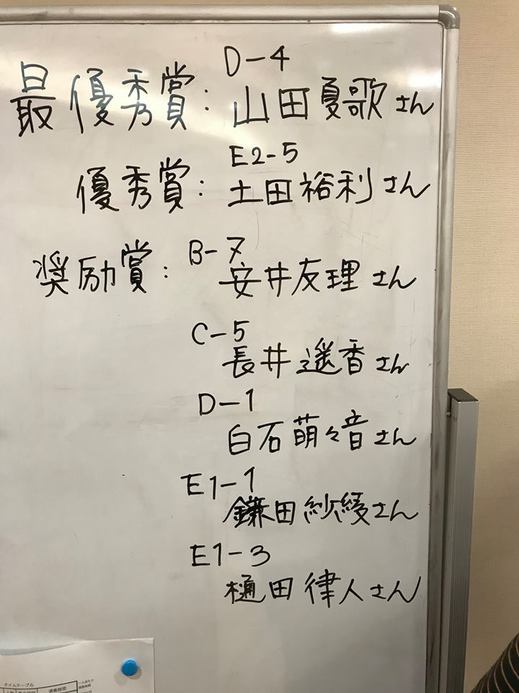 D-4
最優秀賞: 山田夏歌さん
E2-5
優秀賞: 土田裕利さん
B-7
奨励賞: 安井友理さん
C-5
長井遥香さん
D-1
白石萌々音さん
E1-1
鎌田紗綾さん
E1-3
樋田律人さん
タイムテーブル